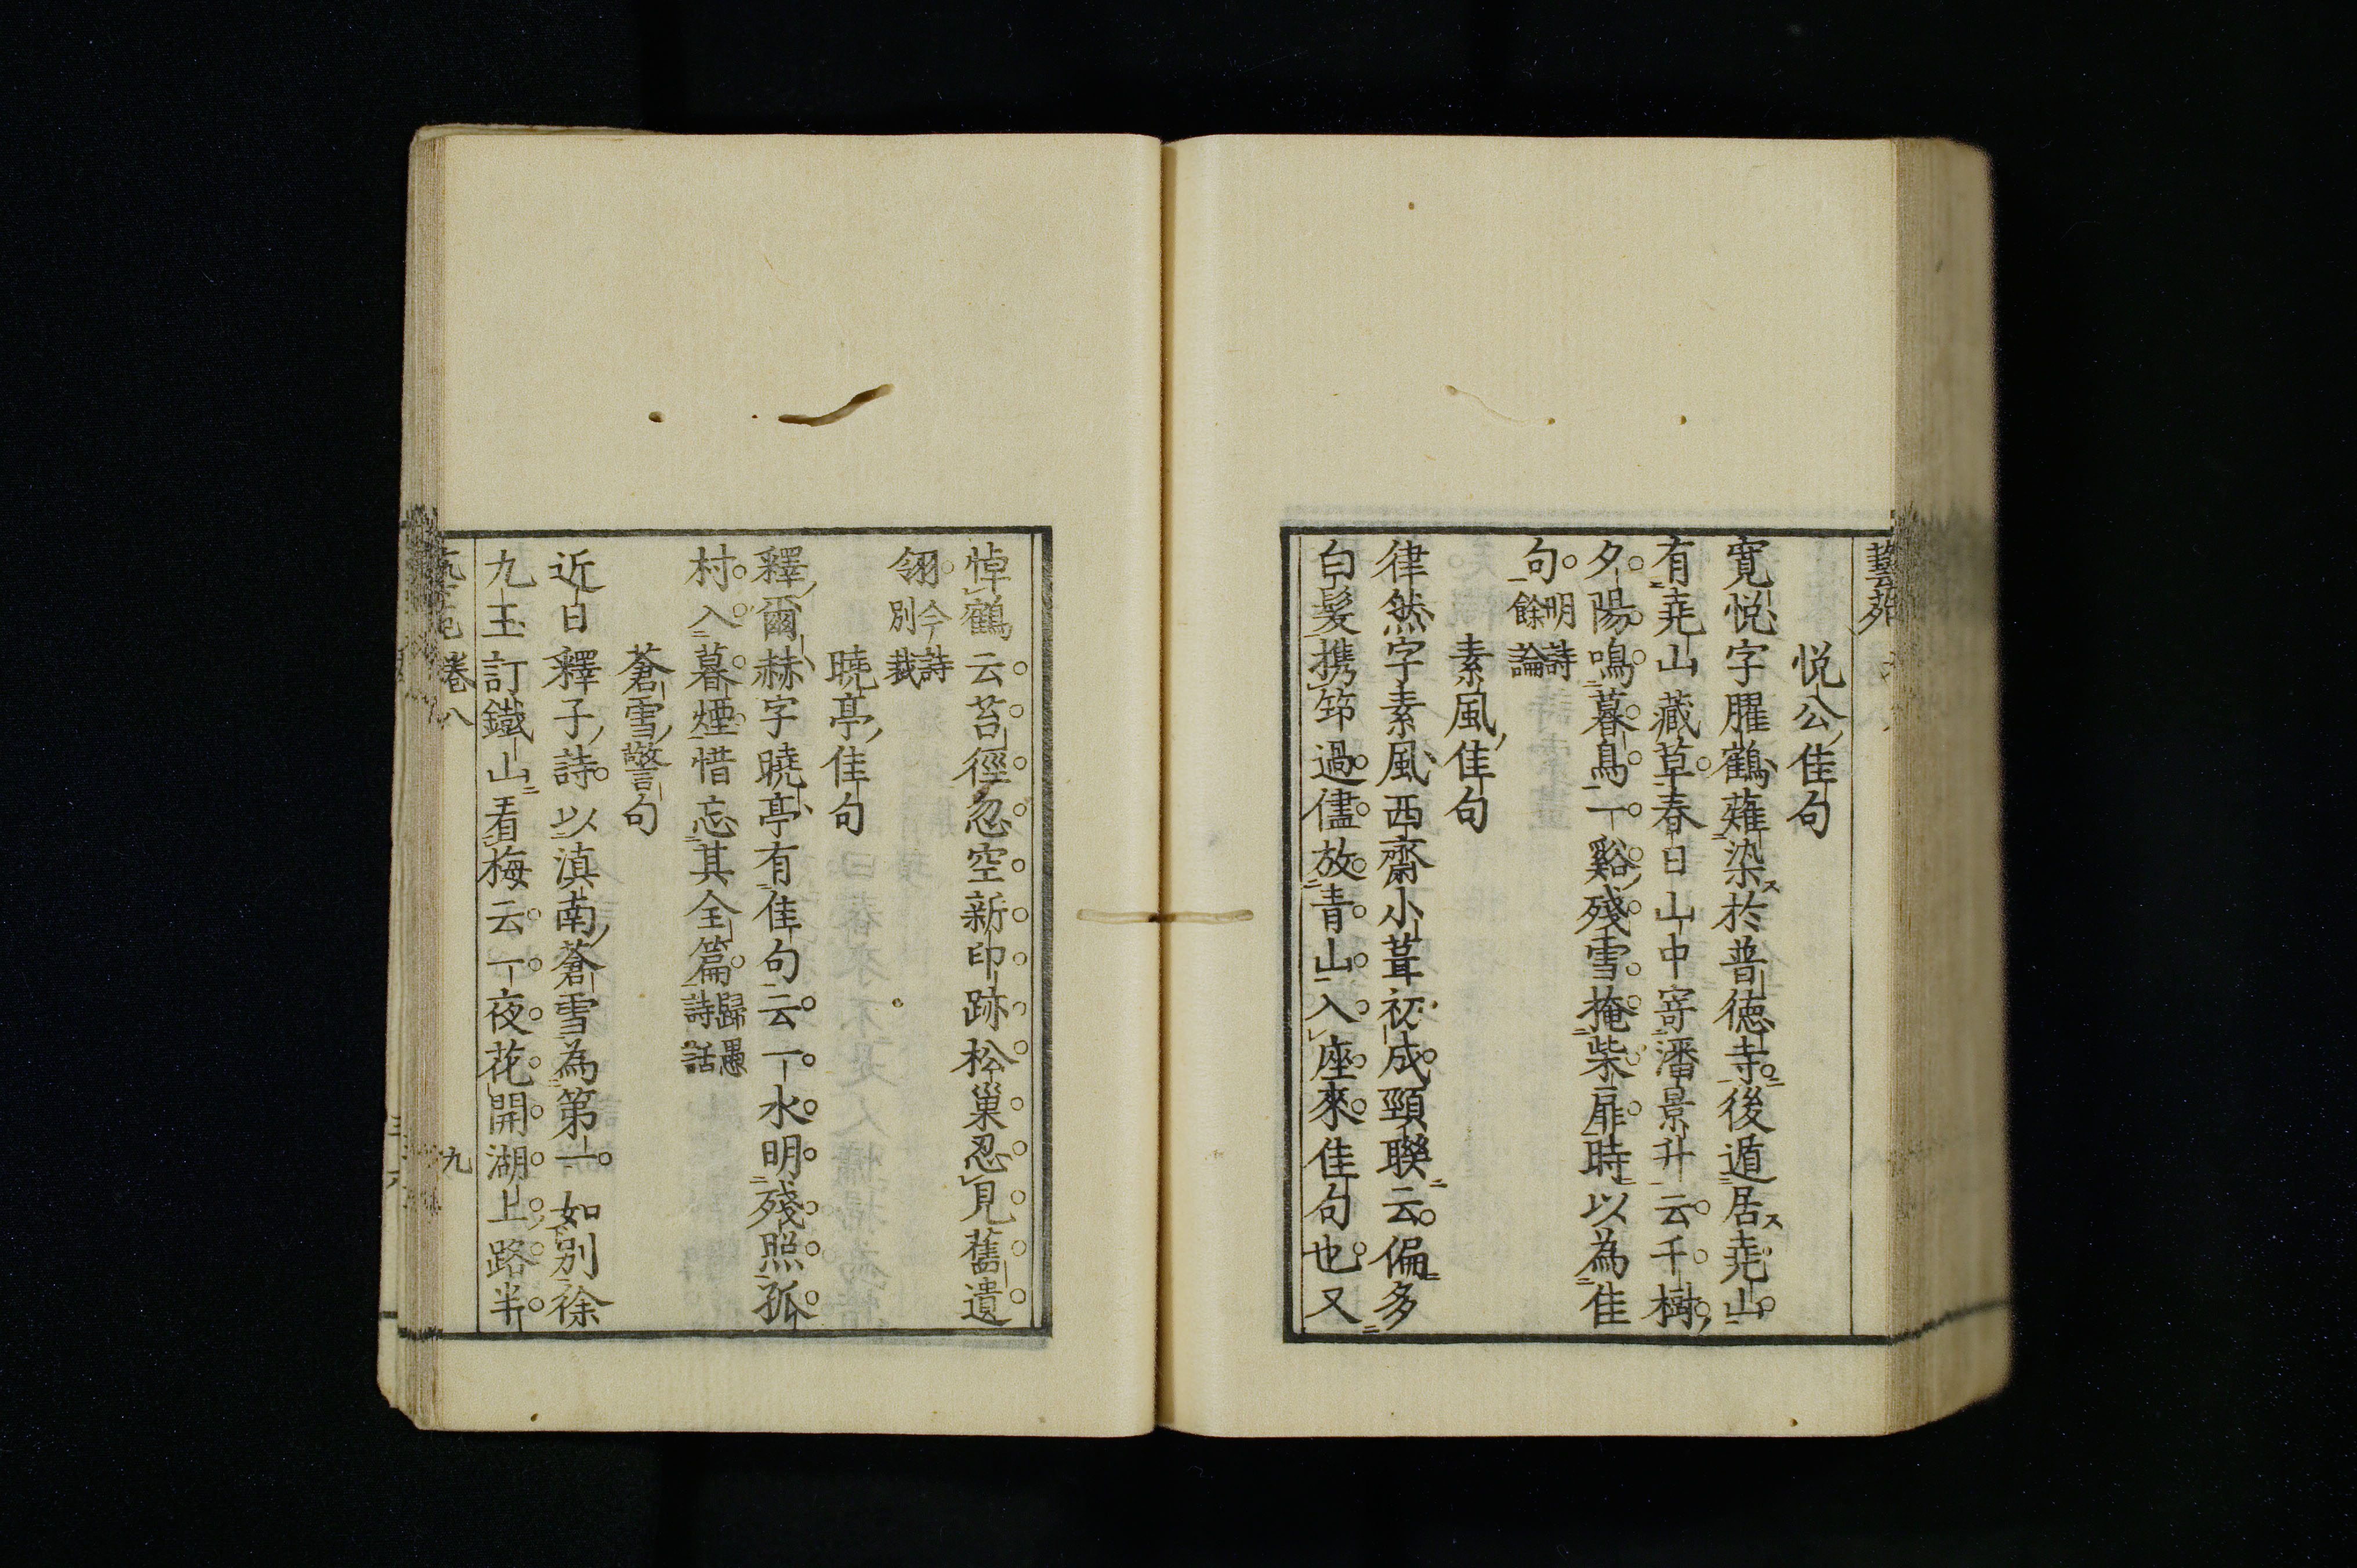 藝苑
悅公佳句
寛悅字臞鶴薙染於普德寺後遁居堯山
有堯山藏草春日山中寄潘景升云千樹
夕陽鳴暮鳥一谿殘雪掩柴扉時以為佳
句明詩餘論
素風佳句
律然字素風西齋小葺初成頸聯云偏多
白髮携筇過儘放青山入座來佳句也又
悼鶴云苔徑忽空新印跡松巢忍見舊遺
翎今詩別裁
曉亭佳句
釋爾赫字曉亭有佳句云一水明殘照孤
村入暮煙惜忘其全篇歸愚詩話
蒼雪警句
近日釋子詩以滇南蒼雪為第一如別徐
九玉訂鐵山看梅云一夜花開湖上路半
卷八 九